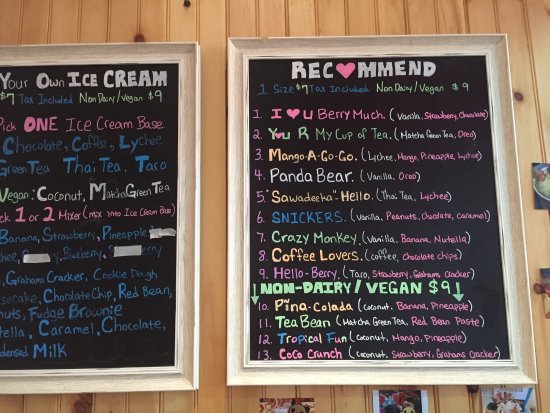 Your Own ICE CREAM
$7 Tax Included Non Dairy/Vegan $9
Pick ONE Ice Cream Base
Chocolate, Coffee, Lychee
Green Tea Thai Tea, Taro
Vegan: Coconut, Matcha Green Tea
Pick 1 or 2 Mixer (mix into Ice Cream Base)
Banana, Strawberry, Pineapple
Blueberry,
Grahams Cracker, Cookie Dough
Chocolate Chip, Red Bean,
Fudge Brownie
Caramel, Chocolate,
Milk
RECOMMEND
1 Size $7 Tax Included. Non Dairy/Vegan $9
1. I ♥ U Berry Much. (Vanilla, Strawberry, Chocolate)
2. You R My Cup of Tea. (Matcha Green Tea, Oreo)
3. Mango-A-Go-Go. (Lychee, Mango, Pineapple, Lychee)
4. Panda Bear. (Vanilla, Oreo)
5. "Sawadeeka"-Hello. (Thai Tea, Lychee)
6. SNICKERS. (Vanilla, Peanuts, Chocolate, Caramel)
7. Crazy Monkey. (Vanilla, Banana, Nutella)
8. Coffee Lovers. (Coffee, Chocolate Chips)
9. Hello-Berry. (Taro, Strawberry, Grahams Cracker)
NON-DAIRY/VEGAN $9
10. Piña-Colada (Coconut, Banana, Pineapple)
11. Tea Bean (Matcha Green Tea, Red Bean Paste)
12. Tropical Fun (Coconut, Mango, Pineapple)
13. Coco Crunch (Coconut, Strawberry, Grahams Cracker)